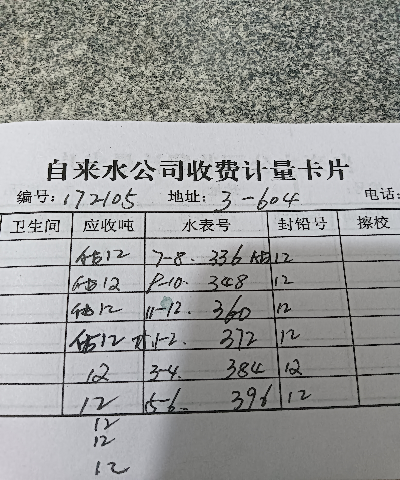 自来水公司收费计量卡片
编号: 172105 地址: 3-604 电话:
卫生间 应收吨 水表号 封铅号 擦校
估12 7-8. 336 12
估12 9-10. 348 12
估12 11-12. 360 12
估12 1-2. 372 12
12 3-4. 384 12
12 5-6. 396 12
12
12
12